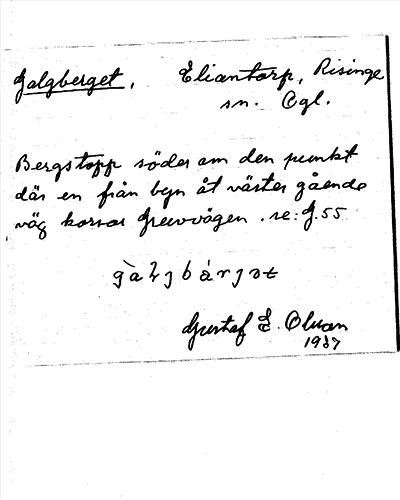 Galgberget. Eliantorp, Risinge
sn. Ögl.
Bergstopp söder om den punkt
där en från byn åt väster gående
väg korsar Greuvägen. se: G.55
Gustaf E. Olson
1937